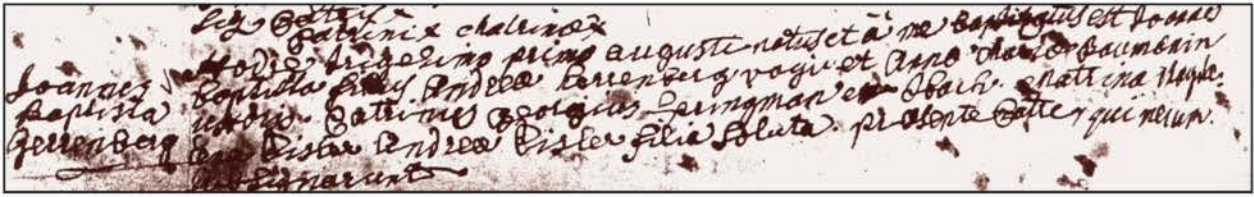 Joannes
Baptista
Herrenberg
patrini x chatrinæ x
Hodie trigesimo primo augusti natus et à me baptizatus est Joannes
baptista filius Andreæ herrenberg vogt et Anna Mariæ Baumänin
uxoris. patrinus georgius Springman ex Sbach. matrina Magda-
lena Kisler Andreæ Kisler filia soluta. præsente patre qui mecum
subsignarunt